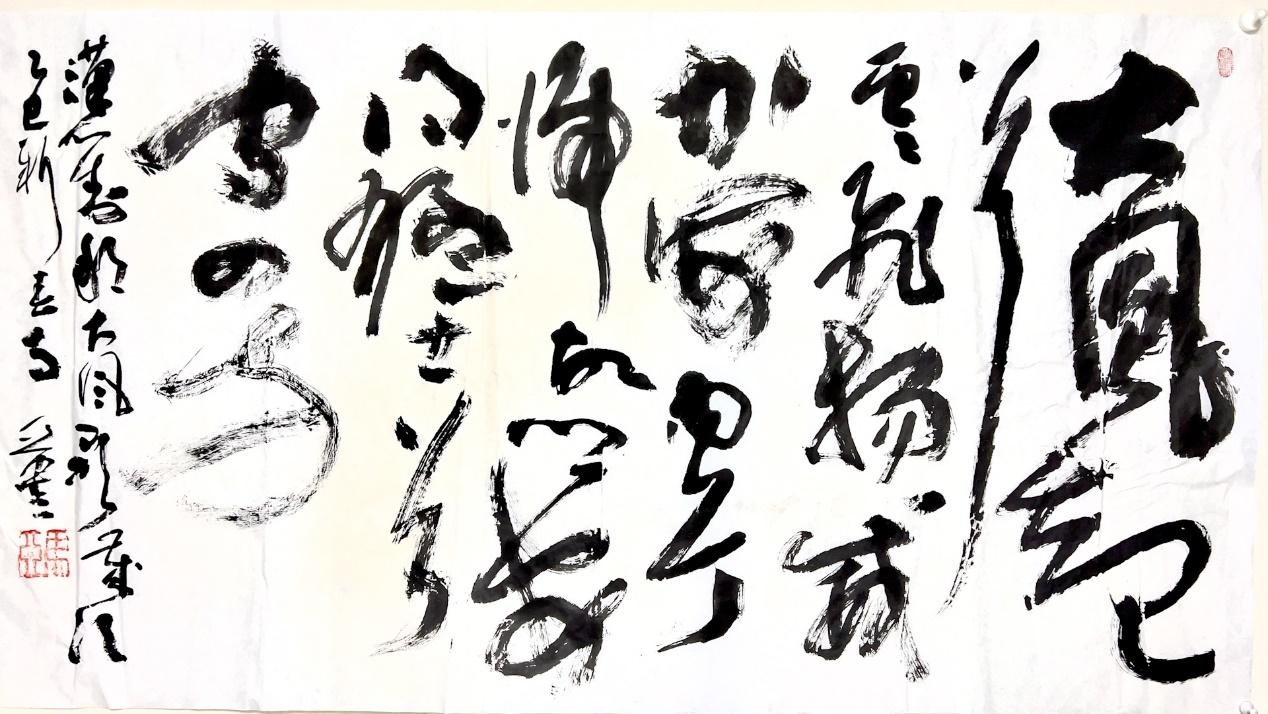 大風起
兮
雲飛揚威
加海内兮
歸故鄉安
得猛士兮
守四方
漢劉邦大風歌歲次
乙巳新春